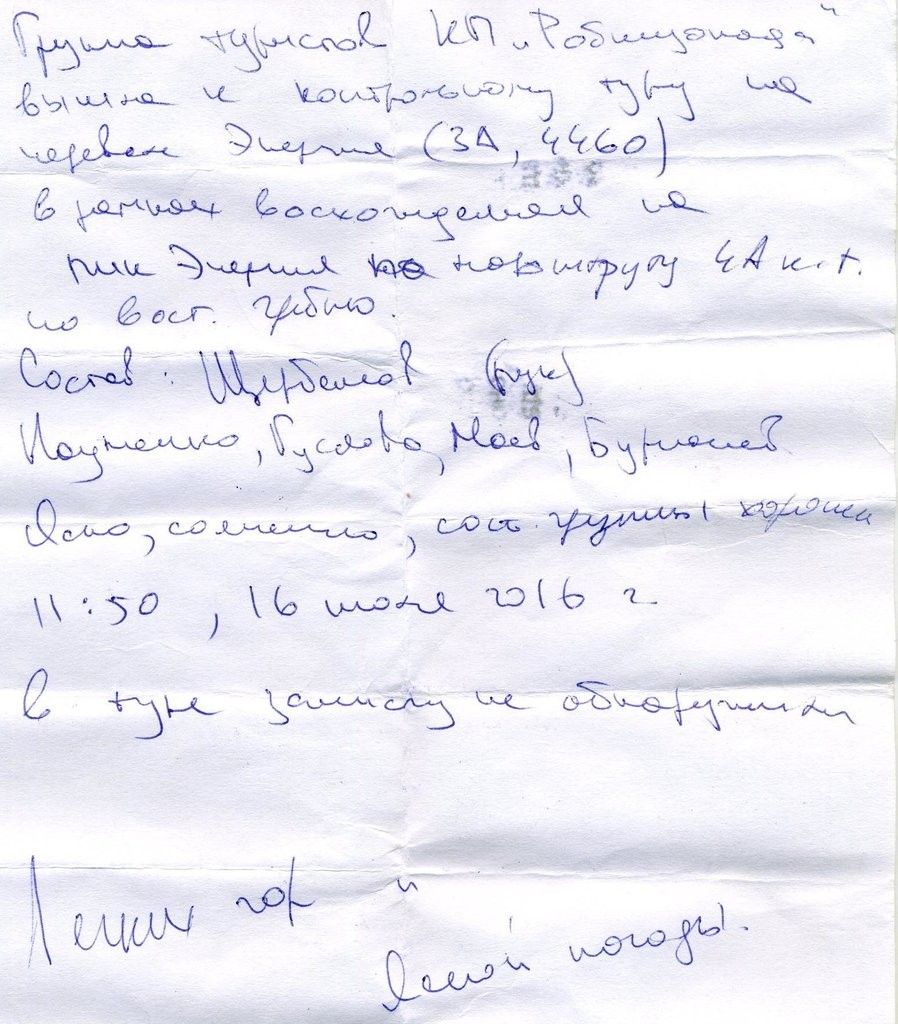 Группа туристов КП „Робинзонада"
вышла к контрольному туру на
перевал Энергия (3А, 4460)
в рамках восхождения на
пик Энергия по маршруту 4А к.т.
по вост. гребню.
Состав: Щербаков (рук)
Науменко, Гуслова, Маев, Бурнашев
Ясно, солнечно, сост. группы хорошее
11:50, 16 июля 2016 г
в туре записку не обнаружили
Легких гор и
Ясной погоды.